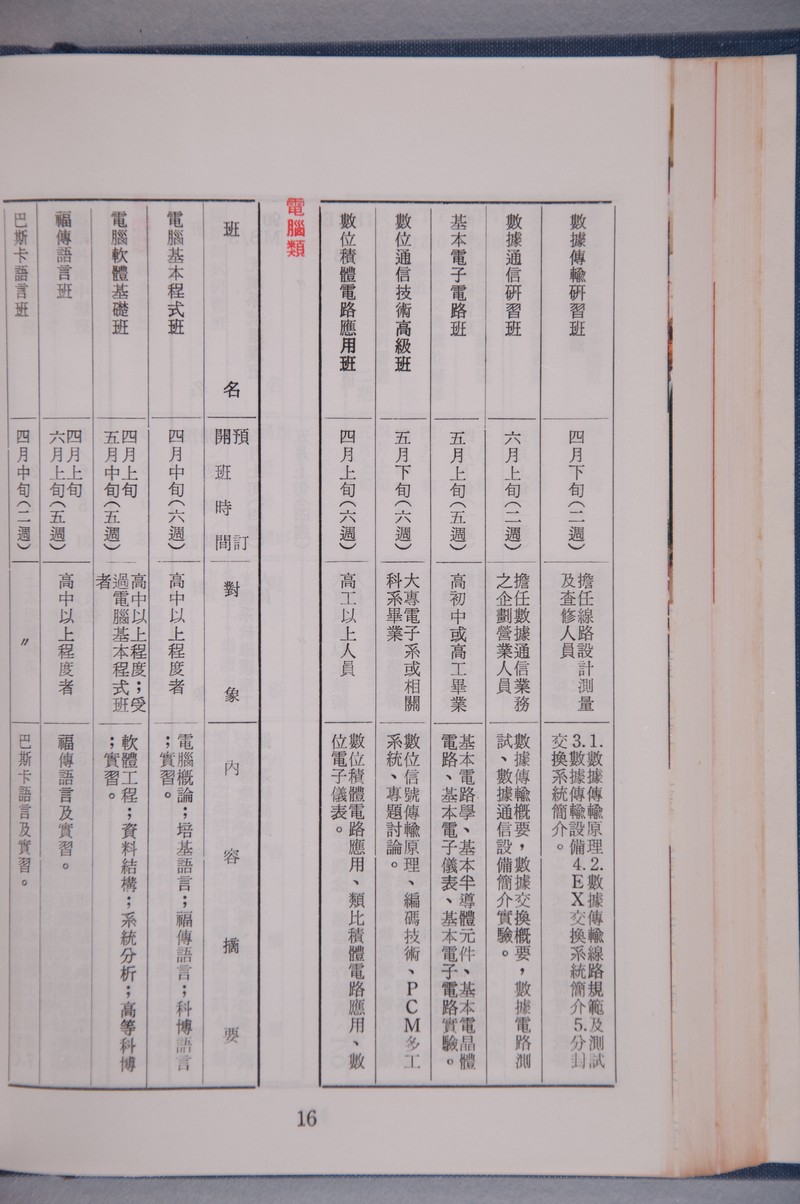 數據傳輸硏習班
四月下旬(二週)
擔任線路設計測量
及査修人員
1.數據傳輸原理2.數據傳輸線路規範及測試
3.數據傳輸設備4.EX交換系統簡介5.分封
交換系統簡介。
數據通信硏習班
六月上旬(二週)
擔任數據通信業務
之企劃營業人員
數據傳輸概要，數據交換概要，數據電路測
試、數據通信設備簡介實驗。
基本電子電路班
五月上旬(五週)
高初中或高工畢業
基本電路學、基本半導體元件、基本電晶體
電路、基本電子儀表、基本電子電路實驗。
數位通信技術高級班
五月下旬(六週)
大專電子系或相關
科系畢業
數位信號傳輸原理、編碼技術、PCM多工
系統、專題討論。
數位積體電路應用班
四月上旬(六週)
高工以上人員
數位積體電路應用、類比積體電路應用、數
位電子儀表。
電腦類
班名
預訂
開班時間
對象
內容摘要
電腦基本程式班
四月中旬(六週)
高中以上程度者
電腦概論；培基語言；福傳語言；科博語言
；實習。
電腦軟體基礎班
四月上旬
五月中旬(五週)
高中以上程度；受
過電腦基本程式班
者
軟體工程；資料結構；系統分析；高等科博
；實習。
福傳語言班
四月上旬
六月上旬(五週)
高中以上程度者
福傳語言及實習。
巴斯卡語言班
四月中旬(二週)
〃
巴斯卡語言及實習。
16